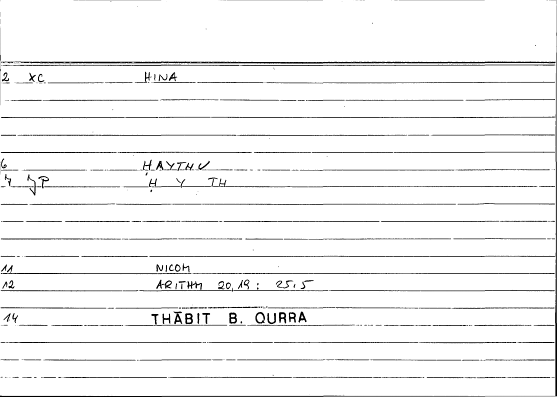 2 XC HINA
6 ḤAYTHU
7 JP Ḥ Y TH
11 NICOM
12 ARITHM 20,19 : 25,5
14 THĀBIT B. QURRA